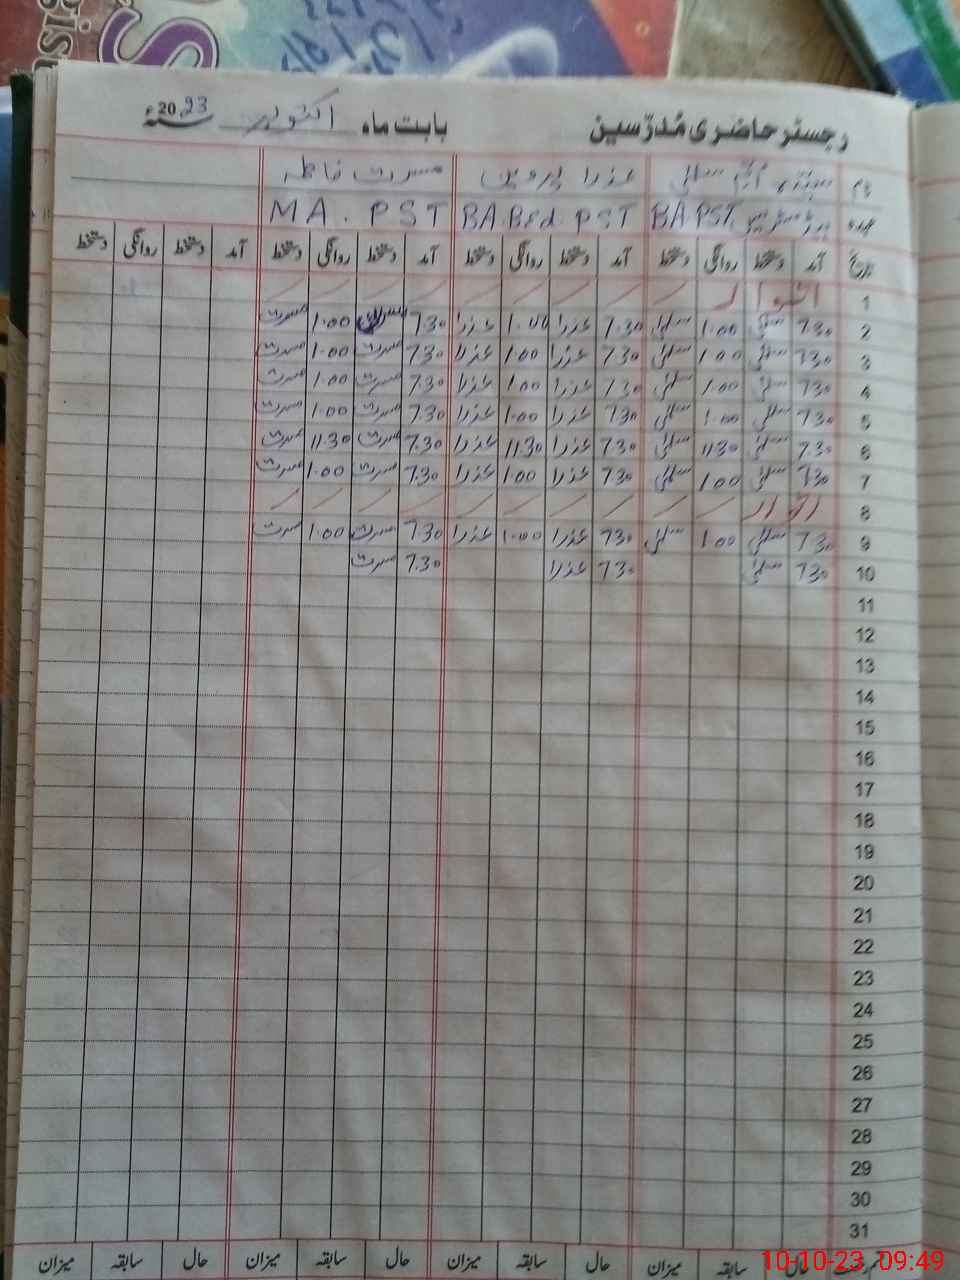 رجسٹر حاضری مُدرّسین بابت ماہ اکتوبر سنہ 2023ء
نام سلمیٰ عذرا پروین مسرت فاطمہ
عہدہ ہیڈ مسٹریس BA.PST BA.Bed.PST MA. PST
تاریخ آمد دستخط روانگی دستخط آمد دستخط روانگی دستخط آمد دستخط روانگی دستخط آمد دستخط روانگی دستخط
1 اتوار
2 7.30 سلمیٰ 1.00 سلمیٰ 7.30 عذرا 1.00 عذرا 7.30 1.00 مسرت
3 7.30 سلمیٰ 1.00 سلمیٰ 7.30 عذرا 1.00 عذرا 7.30 مسرت 1.00 مسرت
4 7.30 سلمیٰ 1.00 سلمیٰ 7.30 عذرا 1.00 عذرا 7.30 مسرت 1.00 مسرت
5 7.30 سلمیٰ 1.00 سلمیٰ 7.30 عذرا 1.00 عذرا 7.30 مسرت 1.00 مسرت
6 7.30 سلمیٰ 11.30 سلمیٰ 7.30 عذرا 11.30 عذرا 7.30 مسرت 11.30 مسرت
7 7.30 سلمیٰ 1.00 سلمیٰ 7.30 عذرا 1.00 عذرا 7.30 مسرت 1.00 مسرت
8 اتوار
9 7.30 سلمیٰ 1.00 سلمیٰ 7.30 عذرا 1.00 عذرا 7.30 مسرت 1.00 مسرت
10 7.30 سلمیٰ 7.30 عذرا 7.30 مسرت
11
12
13
14
15
16
17
18
19
20
21
22
23
24
25
26
27
28
29
30
31
حال سابقہ میزان حال سابقہ میزان حال سابقہ میزان
10-10-23 09:49